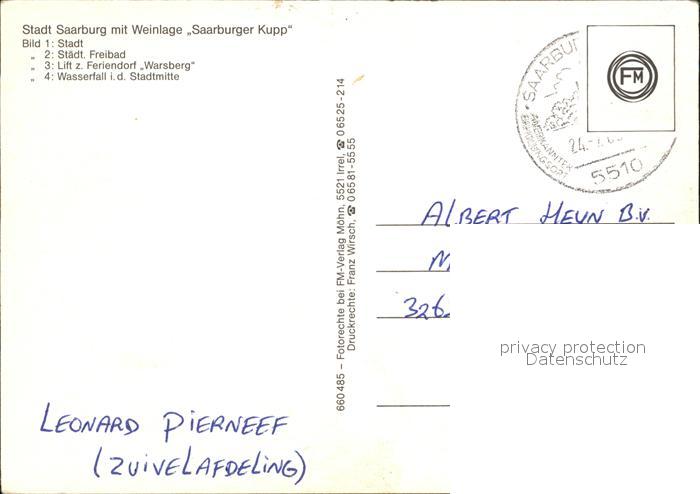 Stadt Saarburg mit Weinlage „Saarburger Kupp“
Bild 1: Stadt
„ 2: Städt. Freibad
„ 3: Lift z. Feriendorf „Warsberg“
„ 4: Wasserfall i. d. Stadtmitte
660 485 – Fotorechte bei FM-Verlag Möhn, 5521 Irrel, ☎ 0 65 25 - 214
Druckrechte: Franz Wirsch, ☎ 0 65 81 - 55 55
FM
5510
ALBERT HEYN B.V.
326
privacy protection
Datenschutz
LEONARD PIERNEEF
(ZUIVELAFDELING)